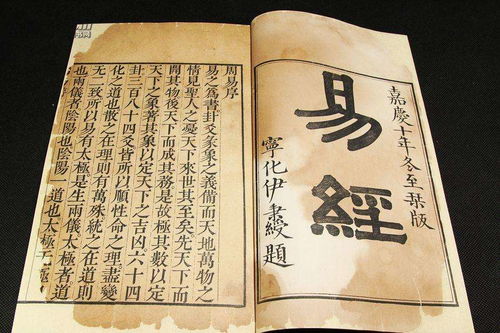 嘉慶十年冬至琹版
易經
寧化伊秉綬題
周易序
易之爲書卦爻彖象之義備而天地萬物之
情見聖人之憂天下來世其至矣先天下而
開其物後天下而成其務是故極其數以定
天下之象著其象以定天下之吉凶六十四
卦三百八十四爻皆所以順性命之理盡變
化之道也散之在理則有萬殊統之在道則
无二致所以易有太極是生兩儀太極者道
也兩儀者陰陽也陰陽一道也太極无極